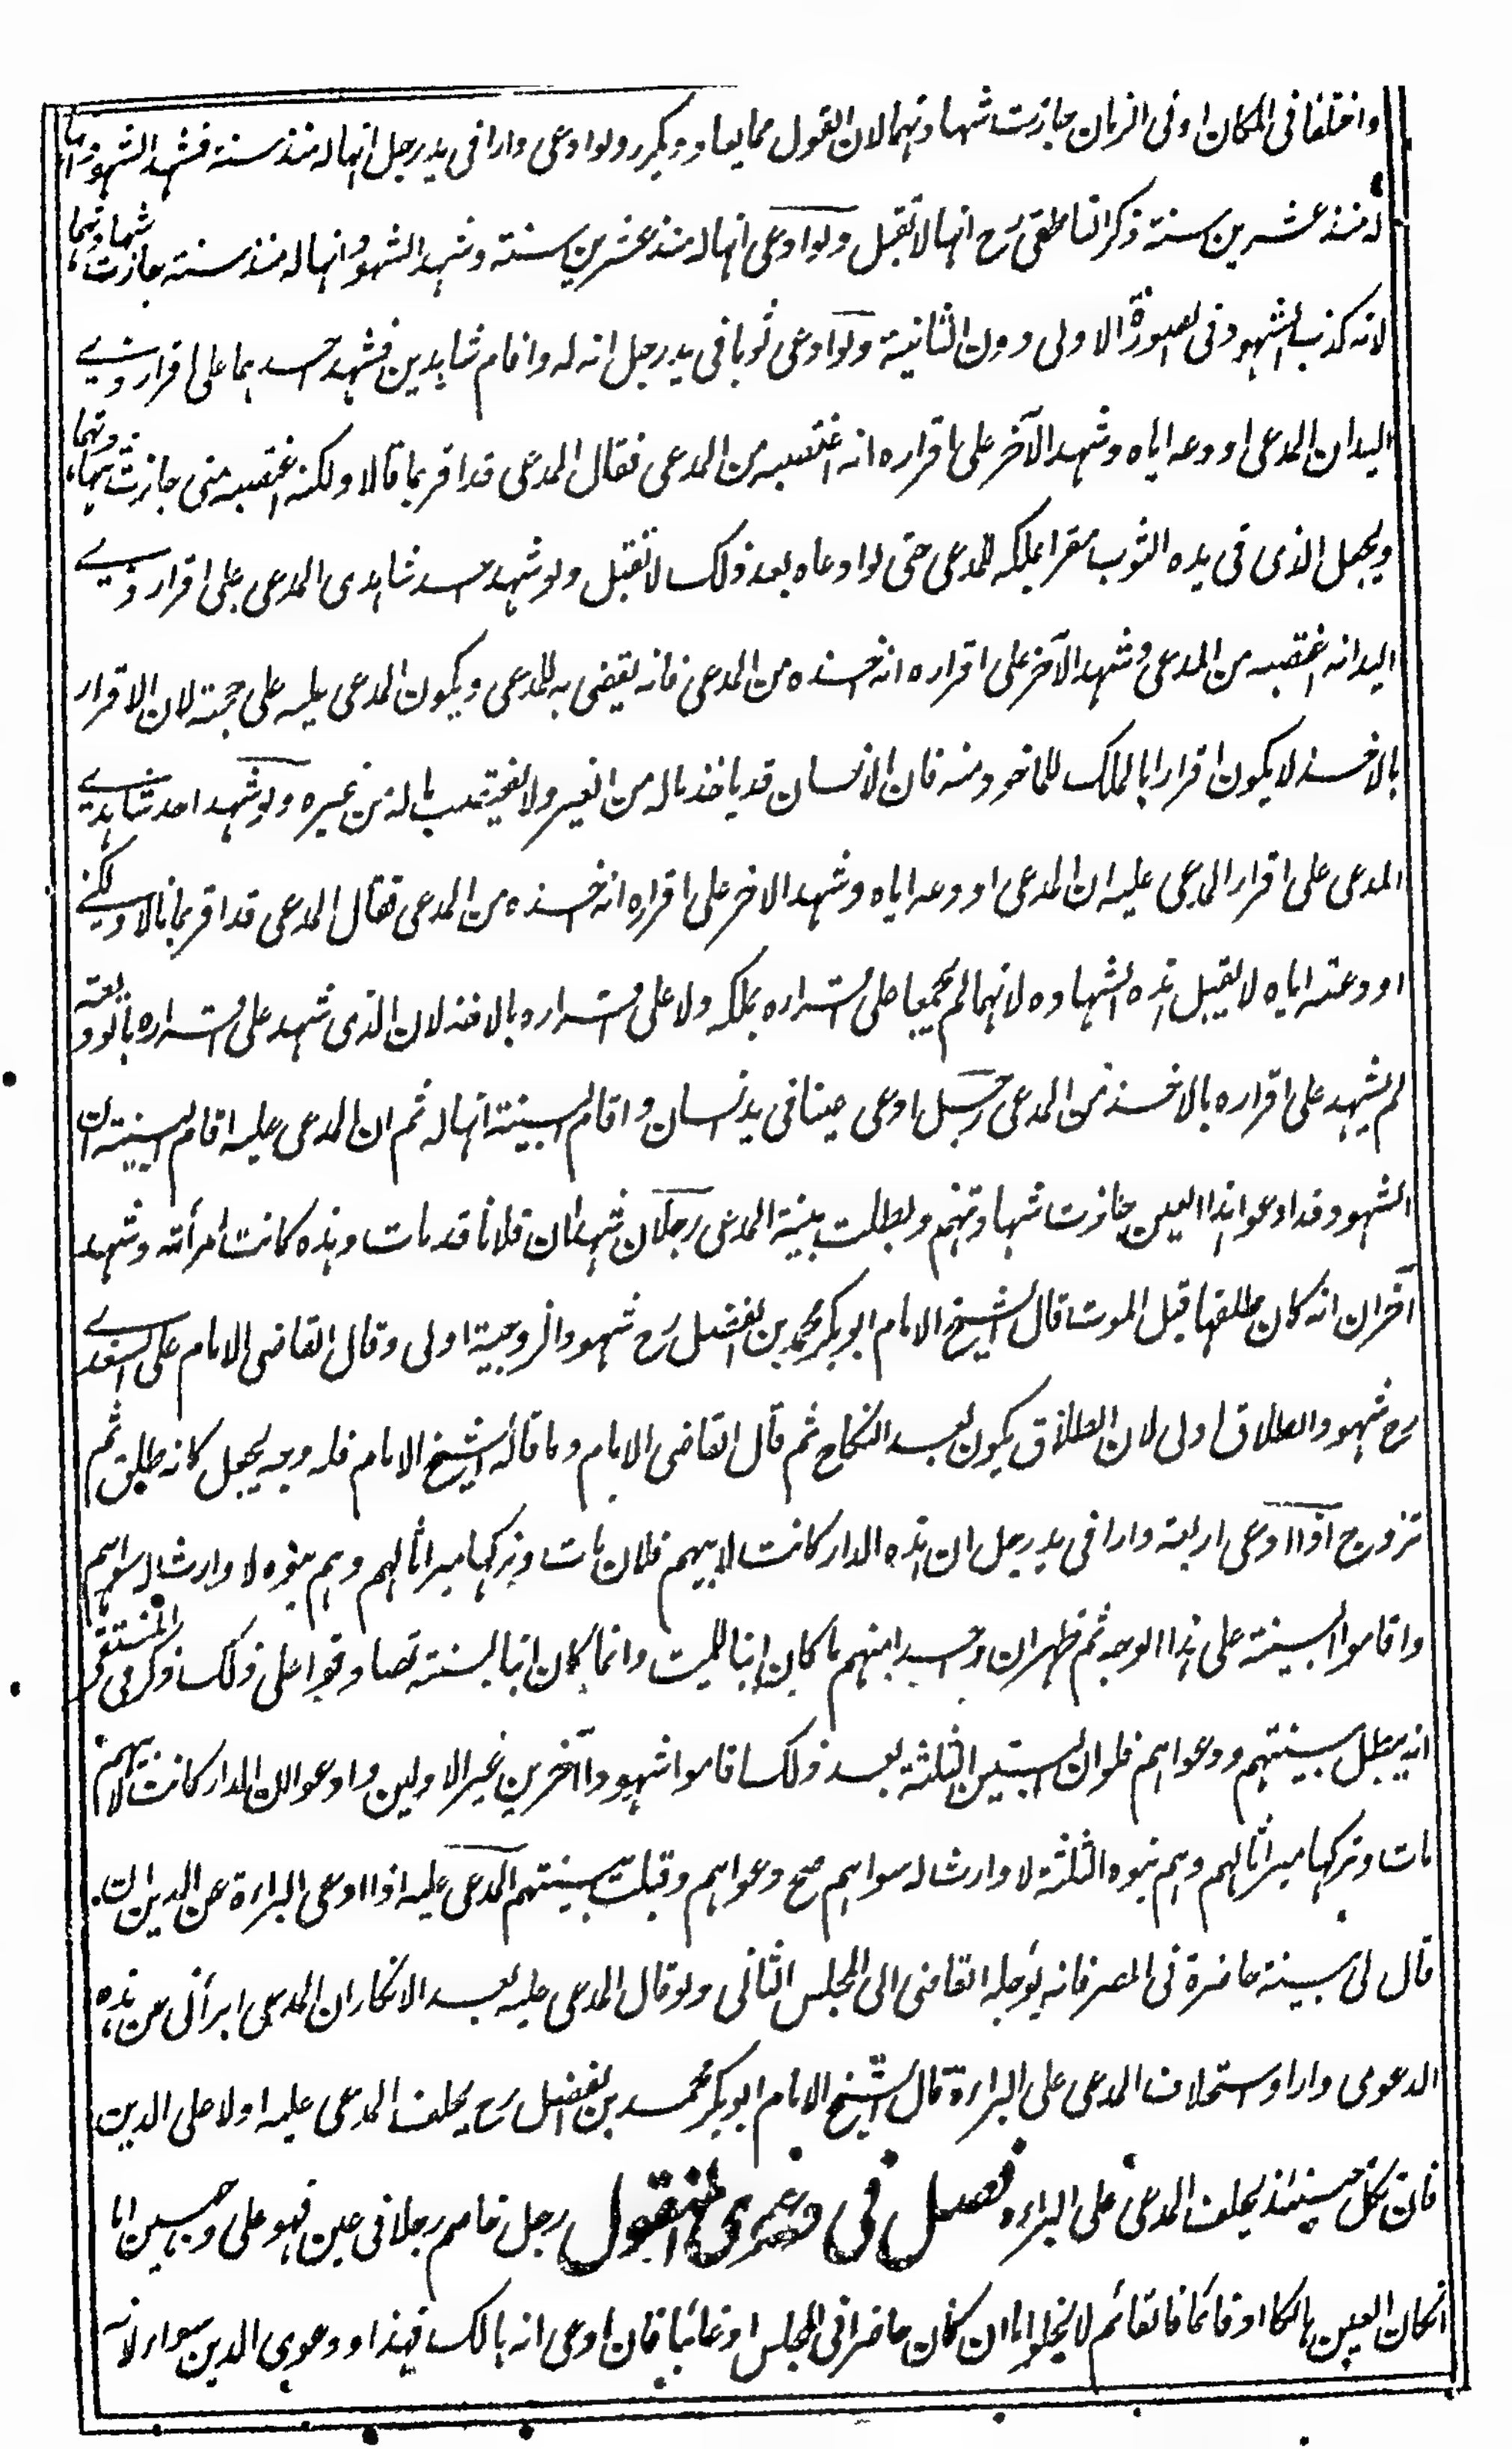 واختلفا فى المكان او فى الزمان جازت شهادتهما لان القول مما يعاد ويكرر ولو ادعى دارا فى يد رجل انها له منذ سنة فشهد الشهود انها
له منذ عشرين سنة ذكر الناطفى رح انها لا تقبل ولو ادعى انها له منذ عشرين سنة وشهد الشهود انها له منذ سنة جازت شهادتهما
لانه كذب الشهود فى الصورة الاولى دون الثانية ولو ادعى ثوبا فى يد رجل انه له واقام شاهدين فشهد احدهما على اقرار ذى
اليد ان المدعى اودعه اياه وشهد الآخر على اقراره انه اغتصبه من المدعى فقال المدعى قد اقر بما قالا ولكنه اغتصبه منى جازت شهادتهما
ويجعل الذى فى يده الثوب مقرا بملكه للمدعى حتى لو ادعاه بعد ذلك لا تقبل ولو شهد احد شاهدى المدعى على اقرار ذى
اليد انه اغتصبه من المدعى وشهد الآخر على اقراره انه اخذه من المدعى فانه يقضى به للمدعى ويكون المدعى عليه على حجته لان الاقرار
بالاخذ لا يكون اقرارا بالملك للماخوذ منه فان الانسان قد ياخذ ماله من الغير ولا يغتصب ماله من غيره ولو شهد احد شاهدى
المدعى على اقرار المدعى عليه ان المدعى اودعه اياه وشهد الاخر على اقراره انه اخذه من المدعى فقال المدعى قد اقر بما قالا ولكنى
اودعته اياه لا يقبل هذه الشهاده لانهما لم يجمعا على اقراره بملكه ولا على اقراره بالاخذ لان الذى شهد على اقراره بالوديعة
لم يشهد على اقراره بالاخذ من المدعى رجل ادعى عينا فى يد انسان واقام البينة انها له ثم ان المدعى عليه اقام البينة ان
الشهود قد ادعوا هذا العين جازت شهادتهم وبطلت بينة المدعى رجلان شهدا ان فلانا قد مات وهذه كانت امرأته وشهد
آخران انه كان طلقها قبل الموت قال الشيخ الامام ابو بكر محمد بن الفضل رح شهود الزوجية اولى وقال القاضى الامام على السغدى
رح شهود الطلاق اولى لان الطلاق يكون بعد النكاح ثم قال القاضى الامام وما قاله الشيخ الامام فله وجه يجعل كانه طلق ثم
تزوج اذا ادعى اربعة دارا فى يد رجل ان هذه الدار كانت لابيهم فلان مات وتركها ميراثا لهم وهم بنوه لا وارث له سواهم
واقاموا البينة على هذا الوجه ثم ظهر ان واحدا منهم ما كان ابنا للميت وانما كان ابنا لبنته تصادقوا على ذلك ذكر فى المنتقى
انه يبطل بينتهم ودعواهم فلو ان البنين الثلثة بعد ذلك اقاموا شهودا آخرين غير الاولين وادعوا ان الدار كانت لابيهم
مات وتركها ميراثا لهم وهم بنوه الثلثة لا وارث له سواهم صح دعواهم وقبلت بينتهم المدعى عليه اذا ادعى البراءة عن الدين ان
قال لى بينة حاضرة فى المصر فانه يؤجله القاضى الى المجلس الثانى ولو قال المدعى عليه بعد الانكار ان المدعى ابرأنى عن هذه
الدعوى واراد استحلاف المدعى على البراءة قال الشيخ الامام ابو بكر محمد بن الفضل رح يحلف المدعى عليه اولا على الدين
فان نكل حينئذ يحلف المدعى على البراءه فصل فى دعوى المنقول رجل خاصم رجلا فى عين فهو على وجهين اما
انكان العين هالكا او قائما فالقائم لا يخلو اما ان كان حاضرا فى المجلس او غائبا فان ادعى انه هالك فهذا ودعوى الدين سواء لانه